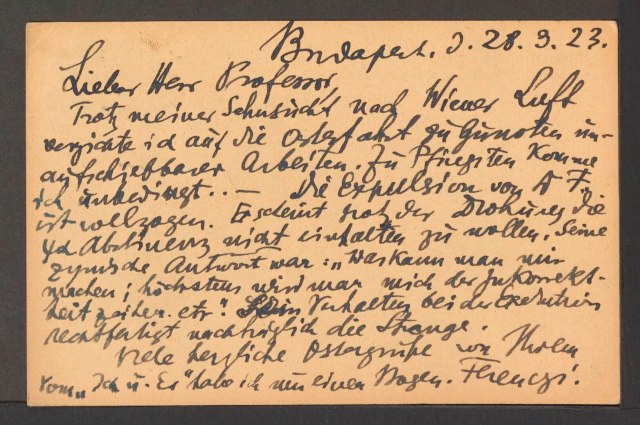 Budapest. d. 28. 3. 23.
Lieber Herr Professor,
Trotz meiner Sehnsucht nach Wiener Luft
verzichte ich auf die Osterfahrt zu Gunsten un-
aufschiebbarer Arbeiten. Zu Pfingsten komme
ich unbedingt.. — Die Expulsion von
ist vollzogen. Er scheint trotz der Drohung die
Abstinenz nicht einhalten zu wollen. Seine
zynische Antwort war: „Was kann man mir
machen; höchstens wird man mich der Inkorrekt-
heit zeihen. etc." Sein Verhalten bei der Exekution
rechtfertigt nachträglich die Strenge.
Viele herzliche Ostergrüße von Ihrem
Vom „Ich u. Es" habe ich nur einen Bogen. Ferenczi.